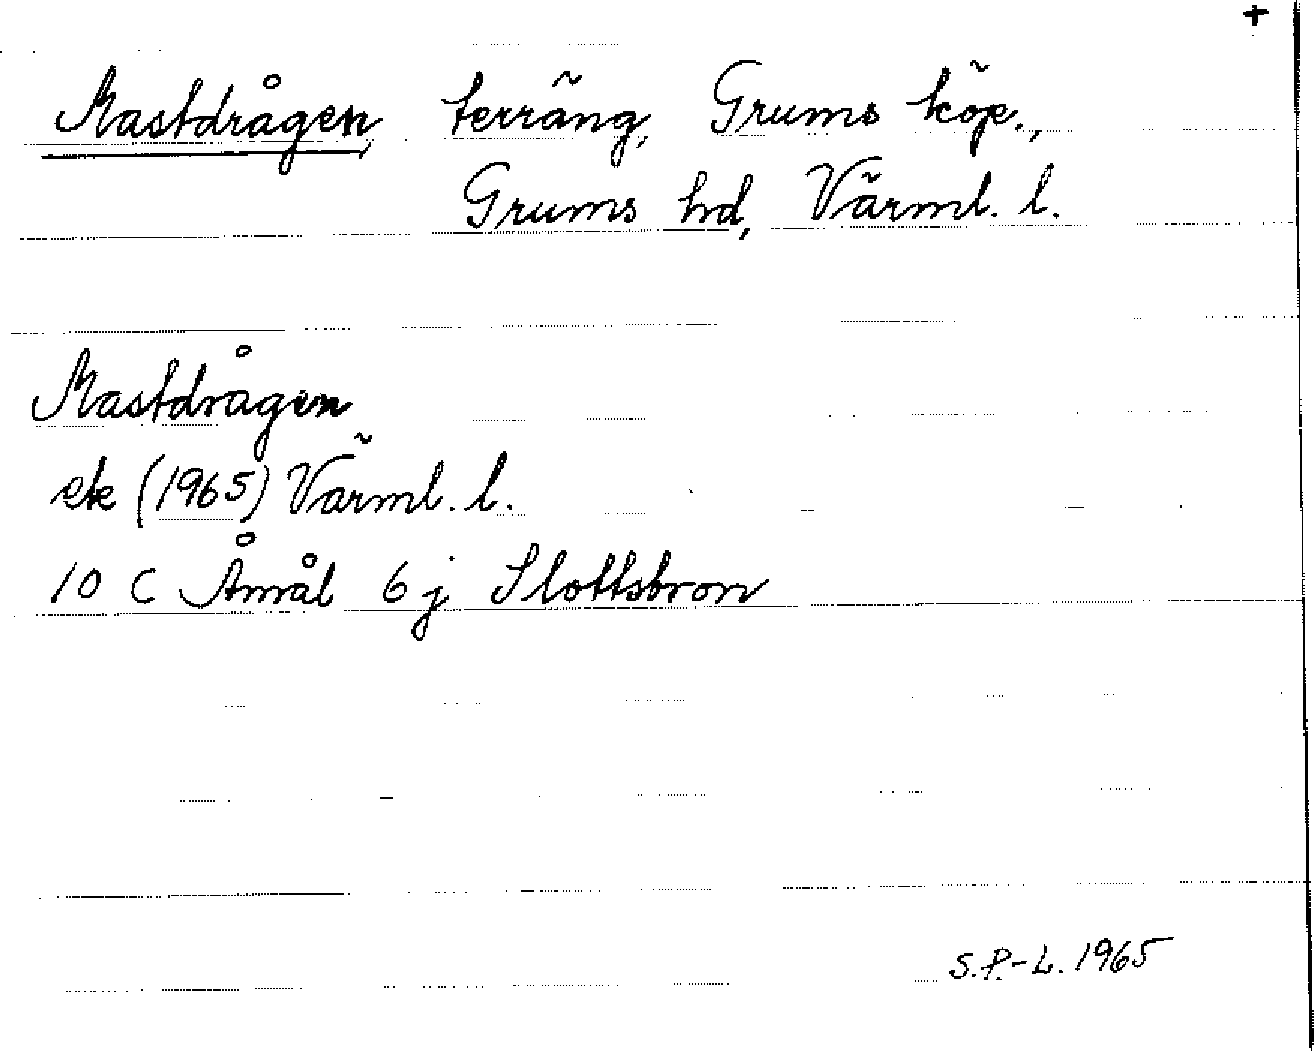 +
Mastdrågen, terräng, Grums köp.,
Grums hd, Värml. l.
Mastdrågen
ek (1965) Värml. l.
10 C Åmål 6 j Slottsbron
S.P.-L. 1965